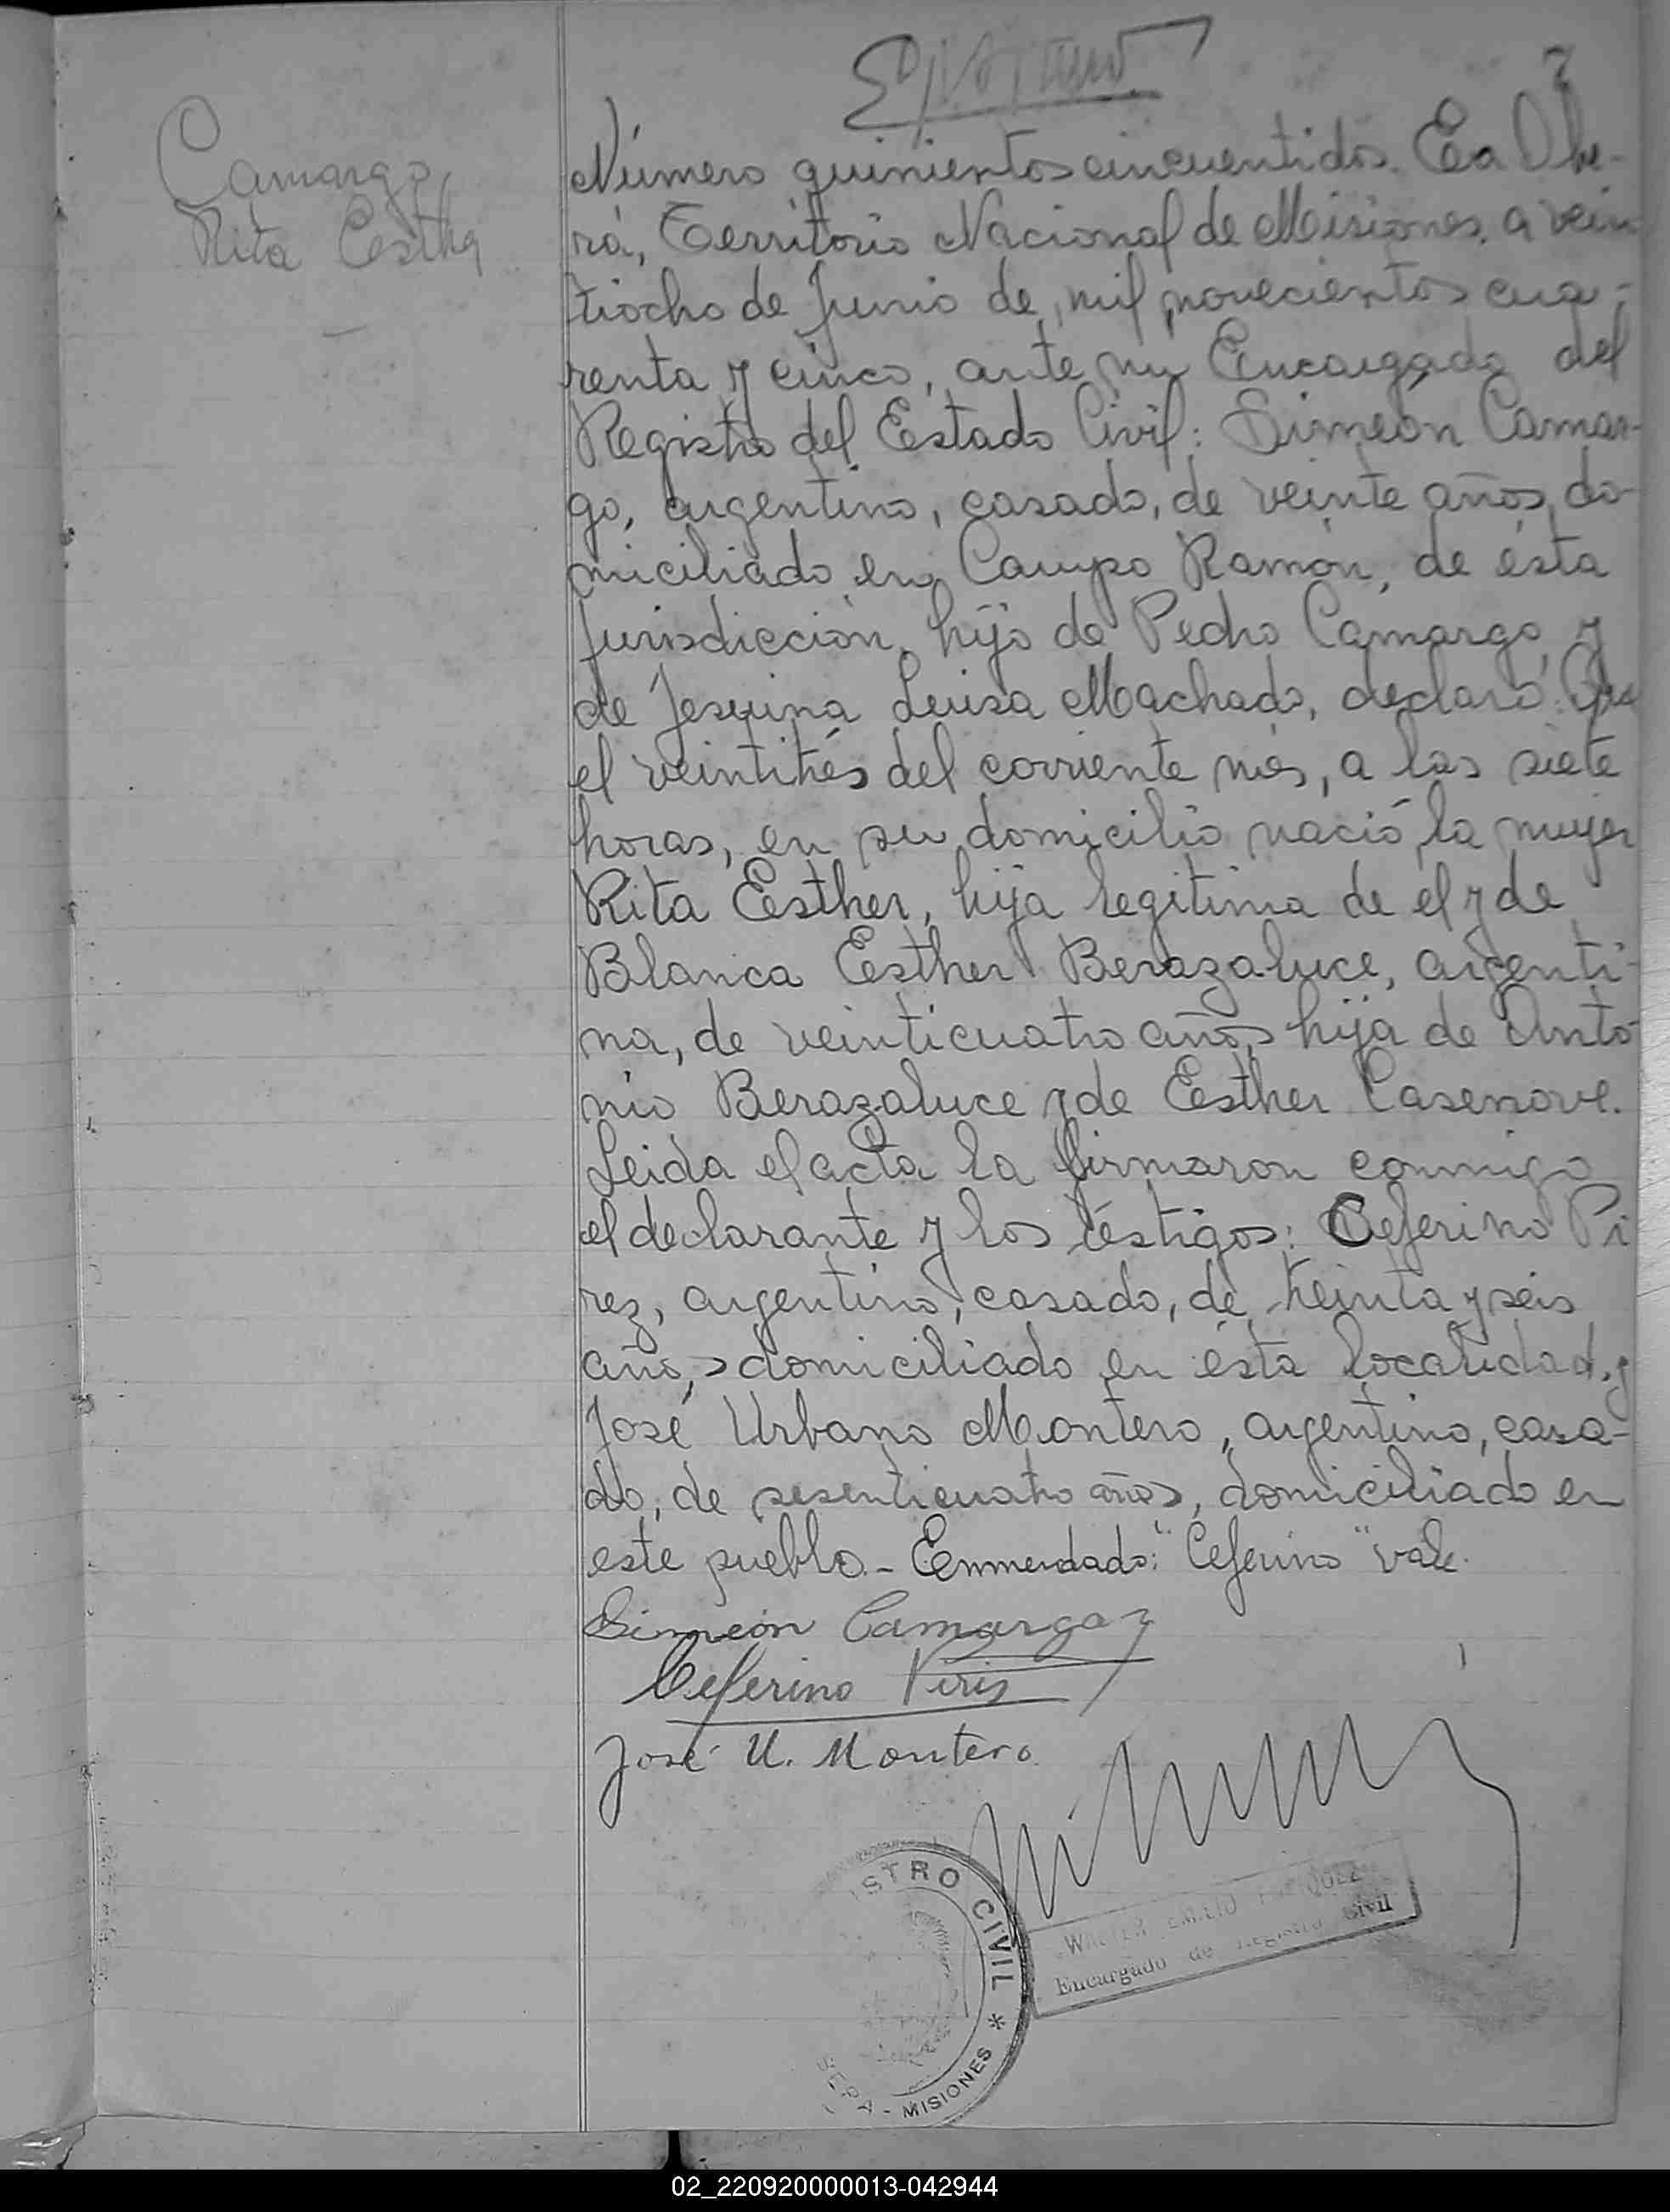 7
Camargo,
Rita Esther
Número quinientos cincuentidos. En Obe-
rá, Território Nacional de Misiones, a vein
tiocho de Junio de mil novecientos cua-
renta y cinco, ante mi Encargado del
Registro del Estado Civil: Simeón Camar-
go, argentino, casado, de veinte años, do
miciliado en Campo Ramón, de ésta
Jurisdicción, hijo de Pedro Camargo, y
de Jesuina Luisa Machado, declaró: Que
el veintitrés del corriente més, a las siete
horas, en su domicilio nació la mujer
Rita Esther, hija legitima de él y de
Blanca Esther Berazaluce, argenti-
na, de veinticuatro años, hija de Anto
nio Berazaluce y de Esther Casenove.
Leida el acta la firmaron conmigo
el declarante y los téstigos: Ceferino Pi
rez, argentino, casado, de treinta y seis
años, domiciliado en ésta localidad, y
José Urbano Montero, argentino, casa-
do, de sesenticuatro años, domiciliado en
este pueblo.- Enmendado: "Ceferino" vale.
Simeón Camargo
Ceferino Piris
José U. Montero
ISTRO CIVIL * MISIONES -
WALTER EMILIO
Encargado de Registro Civil
02_220920000013-042944